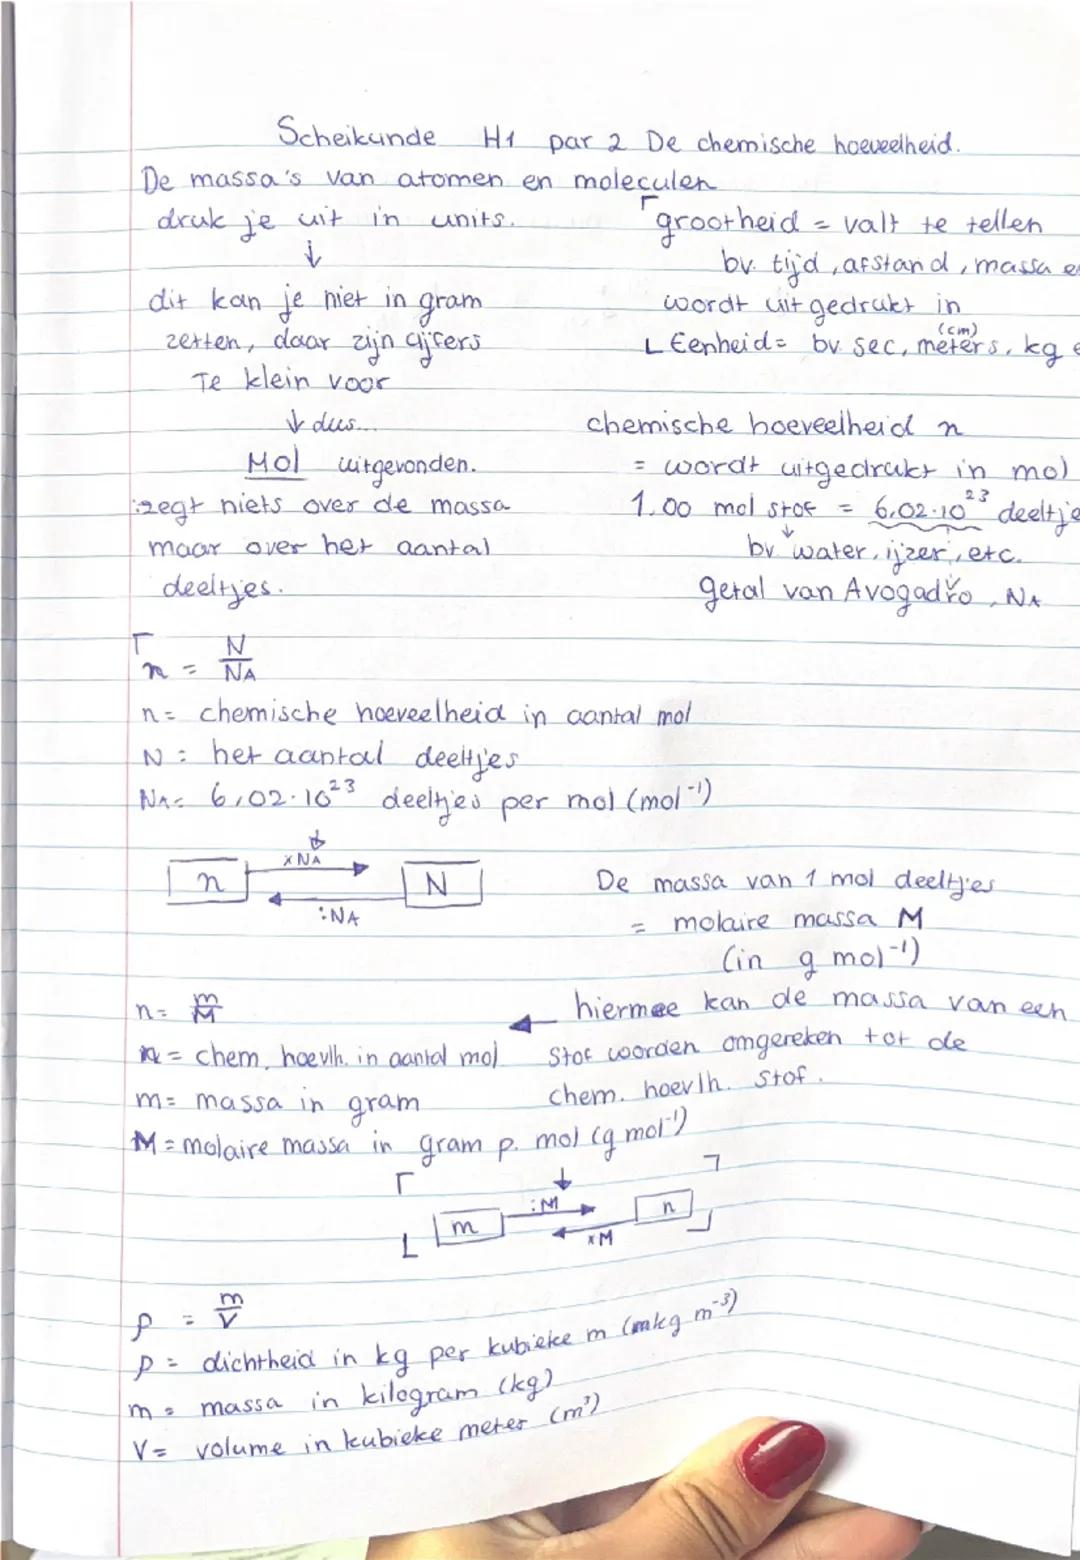 Scheikunde H1 par 2 De chemische hoeveelheid.
De massa's van atomen en moleculen
druk je uit in units.
↓
dit kan je niet in gram
zetten, daar zijn cijfers
Te klein voor
↓ dus...
Mol uitgevonden.
zegt niets over de massa
maar over het aantal
deeltjes.
grootheid = valt te tellen
bv. tijd, afstand, massa e
wordt uitgedrukt in
(cm)
Eenheid = bv sec, meters, kg e
chemische hoeveelheid n
= wordt uitgedrukt in mol
1.00 mol stof = 6,02·10²³ deeltje
↓
bv water, ijzer, etc.
getal van Avogadro, NA
n = N/NA
n = chemische hoeveelheid in aantal mol
N = het aantal deeltjes
NA = 6,02·10²³ deeltjes per mol (mol⁻¹)
x NA
n N
:NA
De massa van 1 mol deeltjes
= molaire massa M
(in g mol⁻¹)
hiermee kan de massa van een
stof worden omgereken tot de
chem. hoevlh. stof.
n = m/M
n = chem. hoevlh. in aantal mol
m = massa in gram
M = molaire massa in gram p. mol (g mol⁻¹)
:M
m n
xM
ρ = m/V
ρ = dichtheid in kg per kubieke m (kg m⁻³)
m = massa in kilogram (kg)
V = volume in kubieke meter (m³)